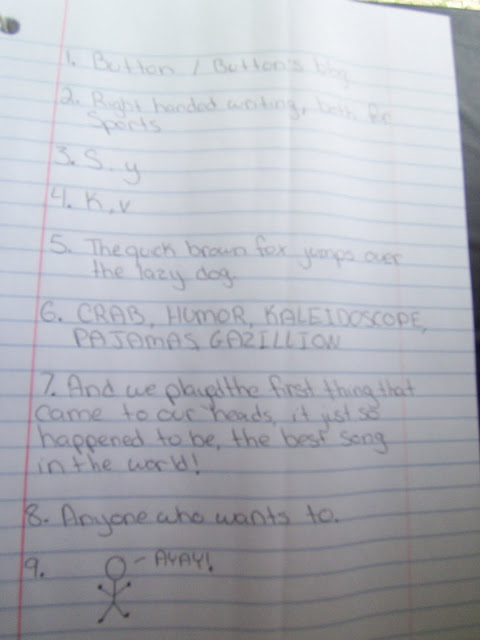 1. Button / Button's blog
2. Right handed writing, both for
Sports
3. S. y
4. K, v
5. The quck brown fox jumps over
the lazy dog.
6. CRAB, HUMOR, KALEIDOSCOPE,
PAJAMAS, GAZILLION
7. And we played the first thing that
came to our heads, it just so
happened to be, the best song
in the world!
8. Anyone who wants to.
9. - AYAY!